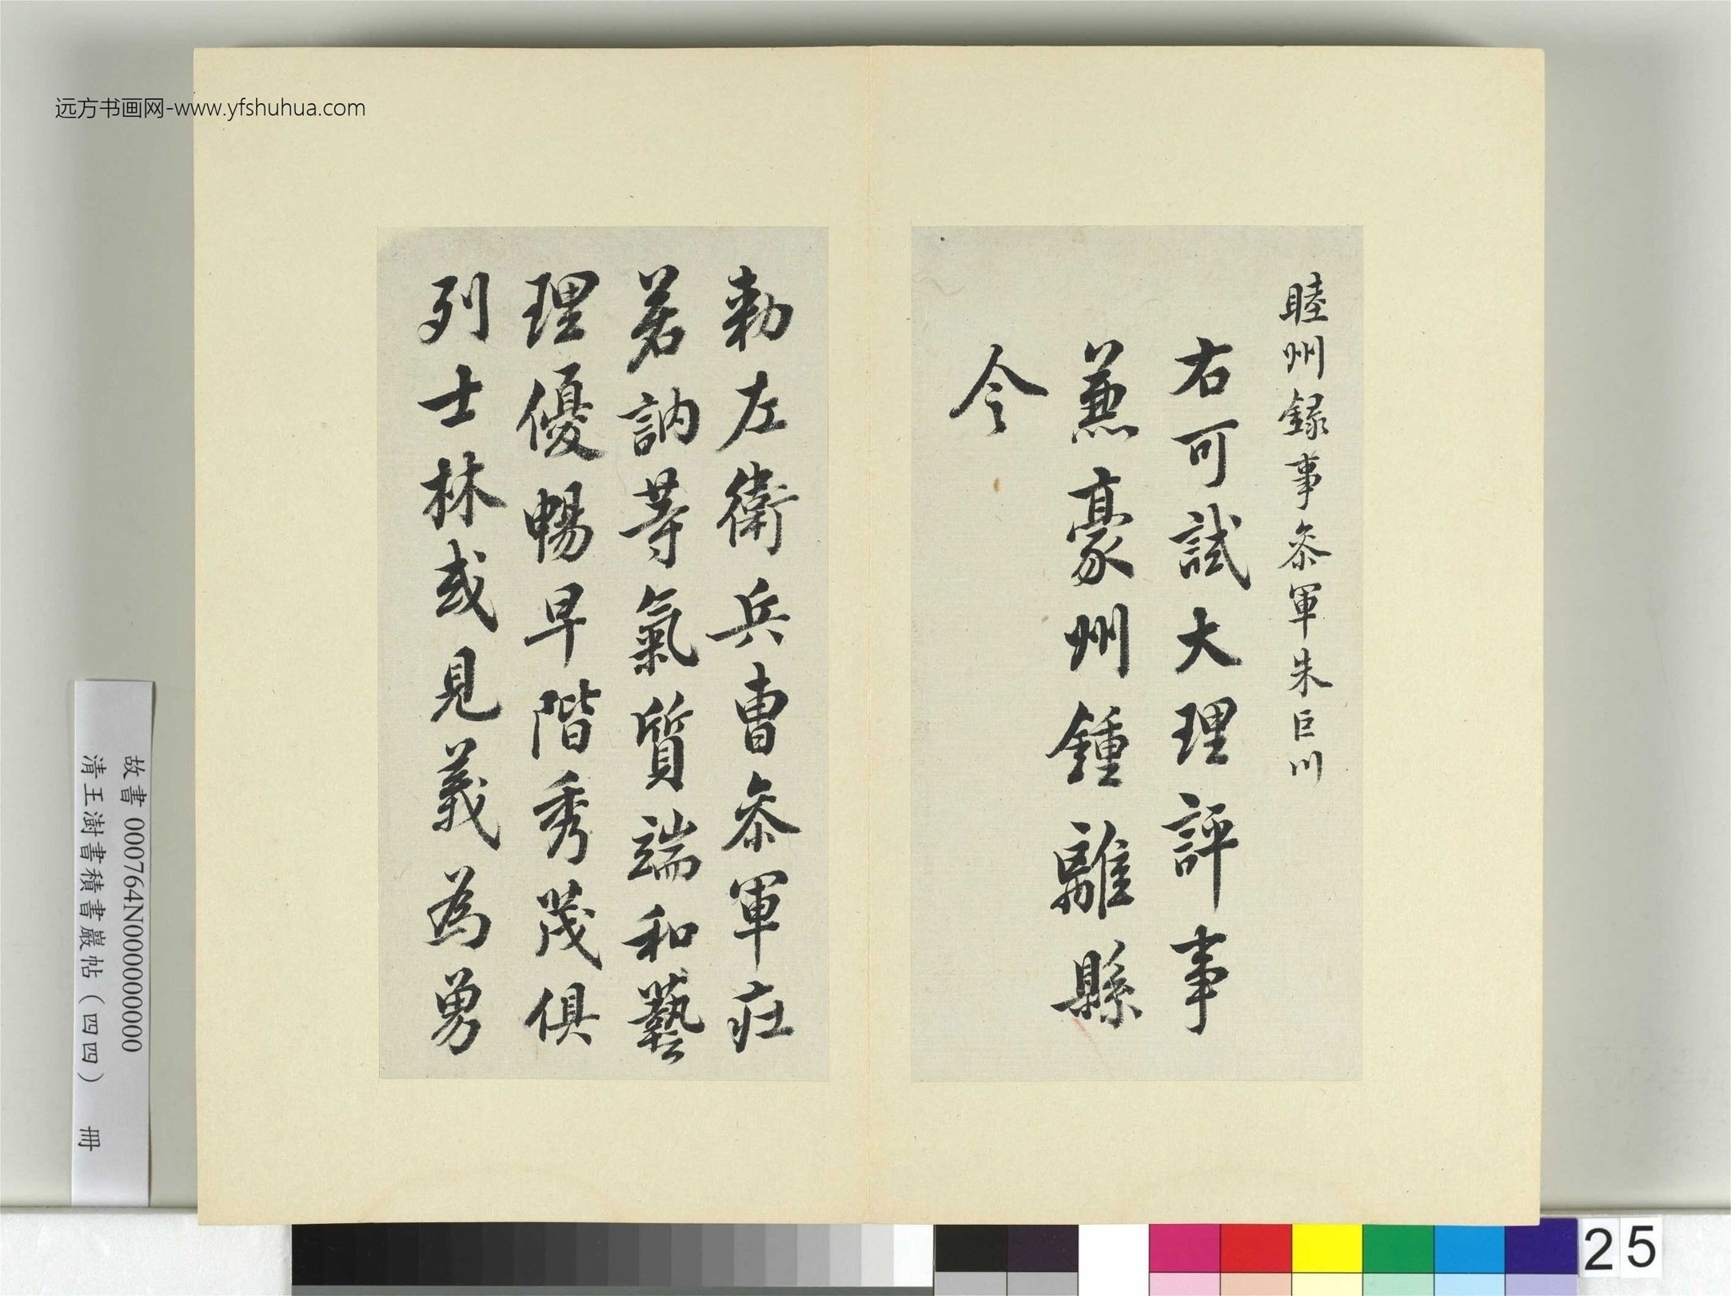 远方书画网-www.yfshuhua.com
睦州錄事叅軍朱巨川
右可試大理評事
兼豪州鍾離縣
令
勅左衛兵曹叅軍莊
若訥等氣質端和藝
理優暢早階秀茂俱
列士林或見義為勇
故書 000764N000000000
清王澍書積書巖帖(四四) 冊
25